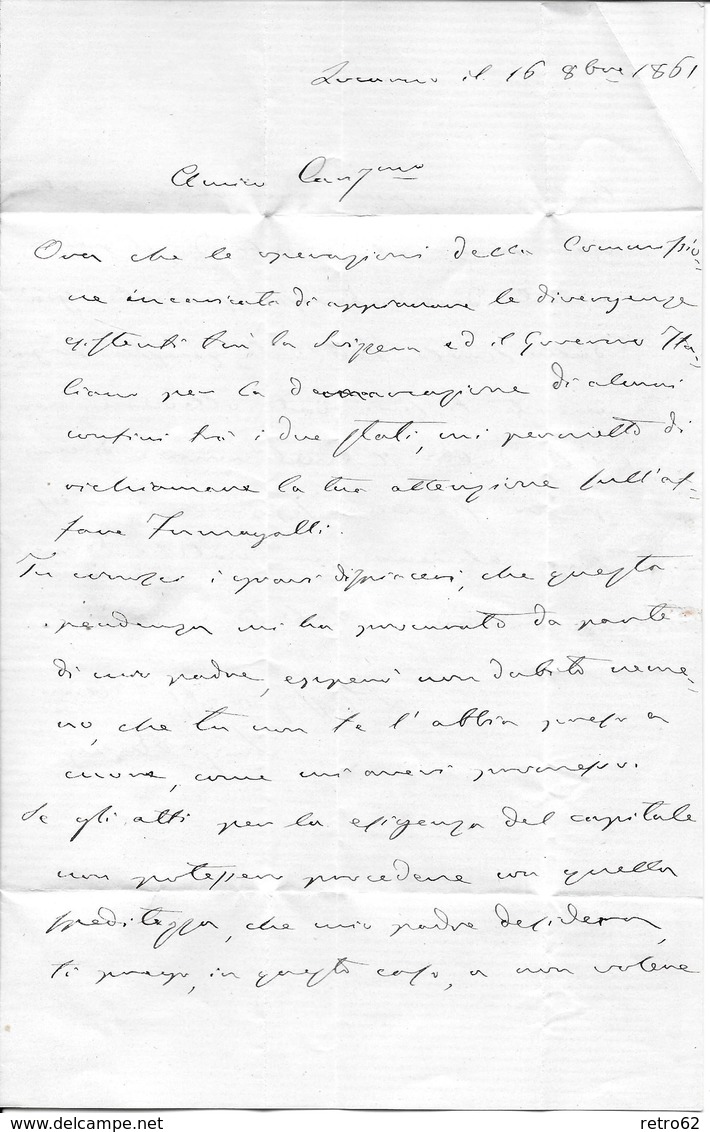 Locarno il 16 8bre 1861
Amico Cariss.mo
Ora che le operazioni della Commissio-
ne incaricata di appianare le divergenze
esistenti trà la Svizzera ed il Governo Ita-
liano per la demarcazione di alcuni
confini trà i due Stati, mi permetto di
richiamare la tua attenzione sull'af-
fare Fumagalli.
Tu conosci i gravi dispiaceri, che questa
pendenza mi ha procurato da parte
di mio padre, epperò non dubito neme-
no, che tu non te l'abbia preso a
cuore, come mi avevi promesso.
Se gli atti per la esigenza del capitale
non potessero procedere con quella
speditezza, che mio padre desidera,
ti prego, in questo caso, a non volere
www.delcampe.net
retro62